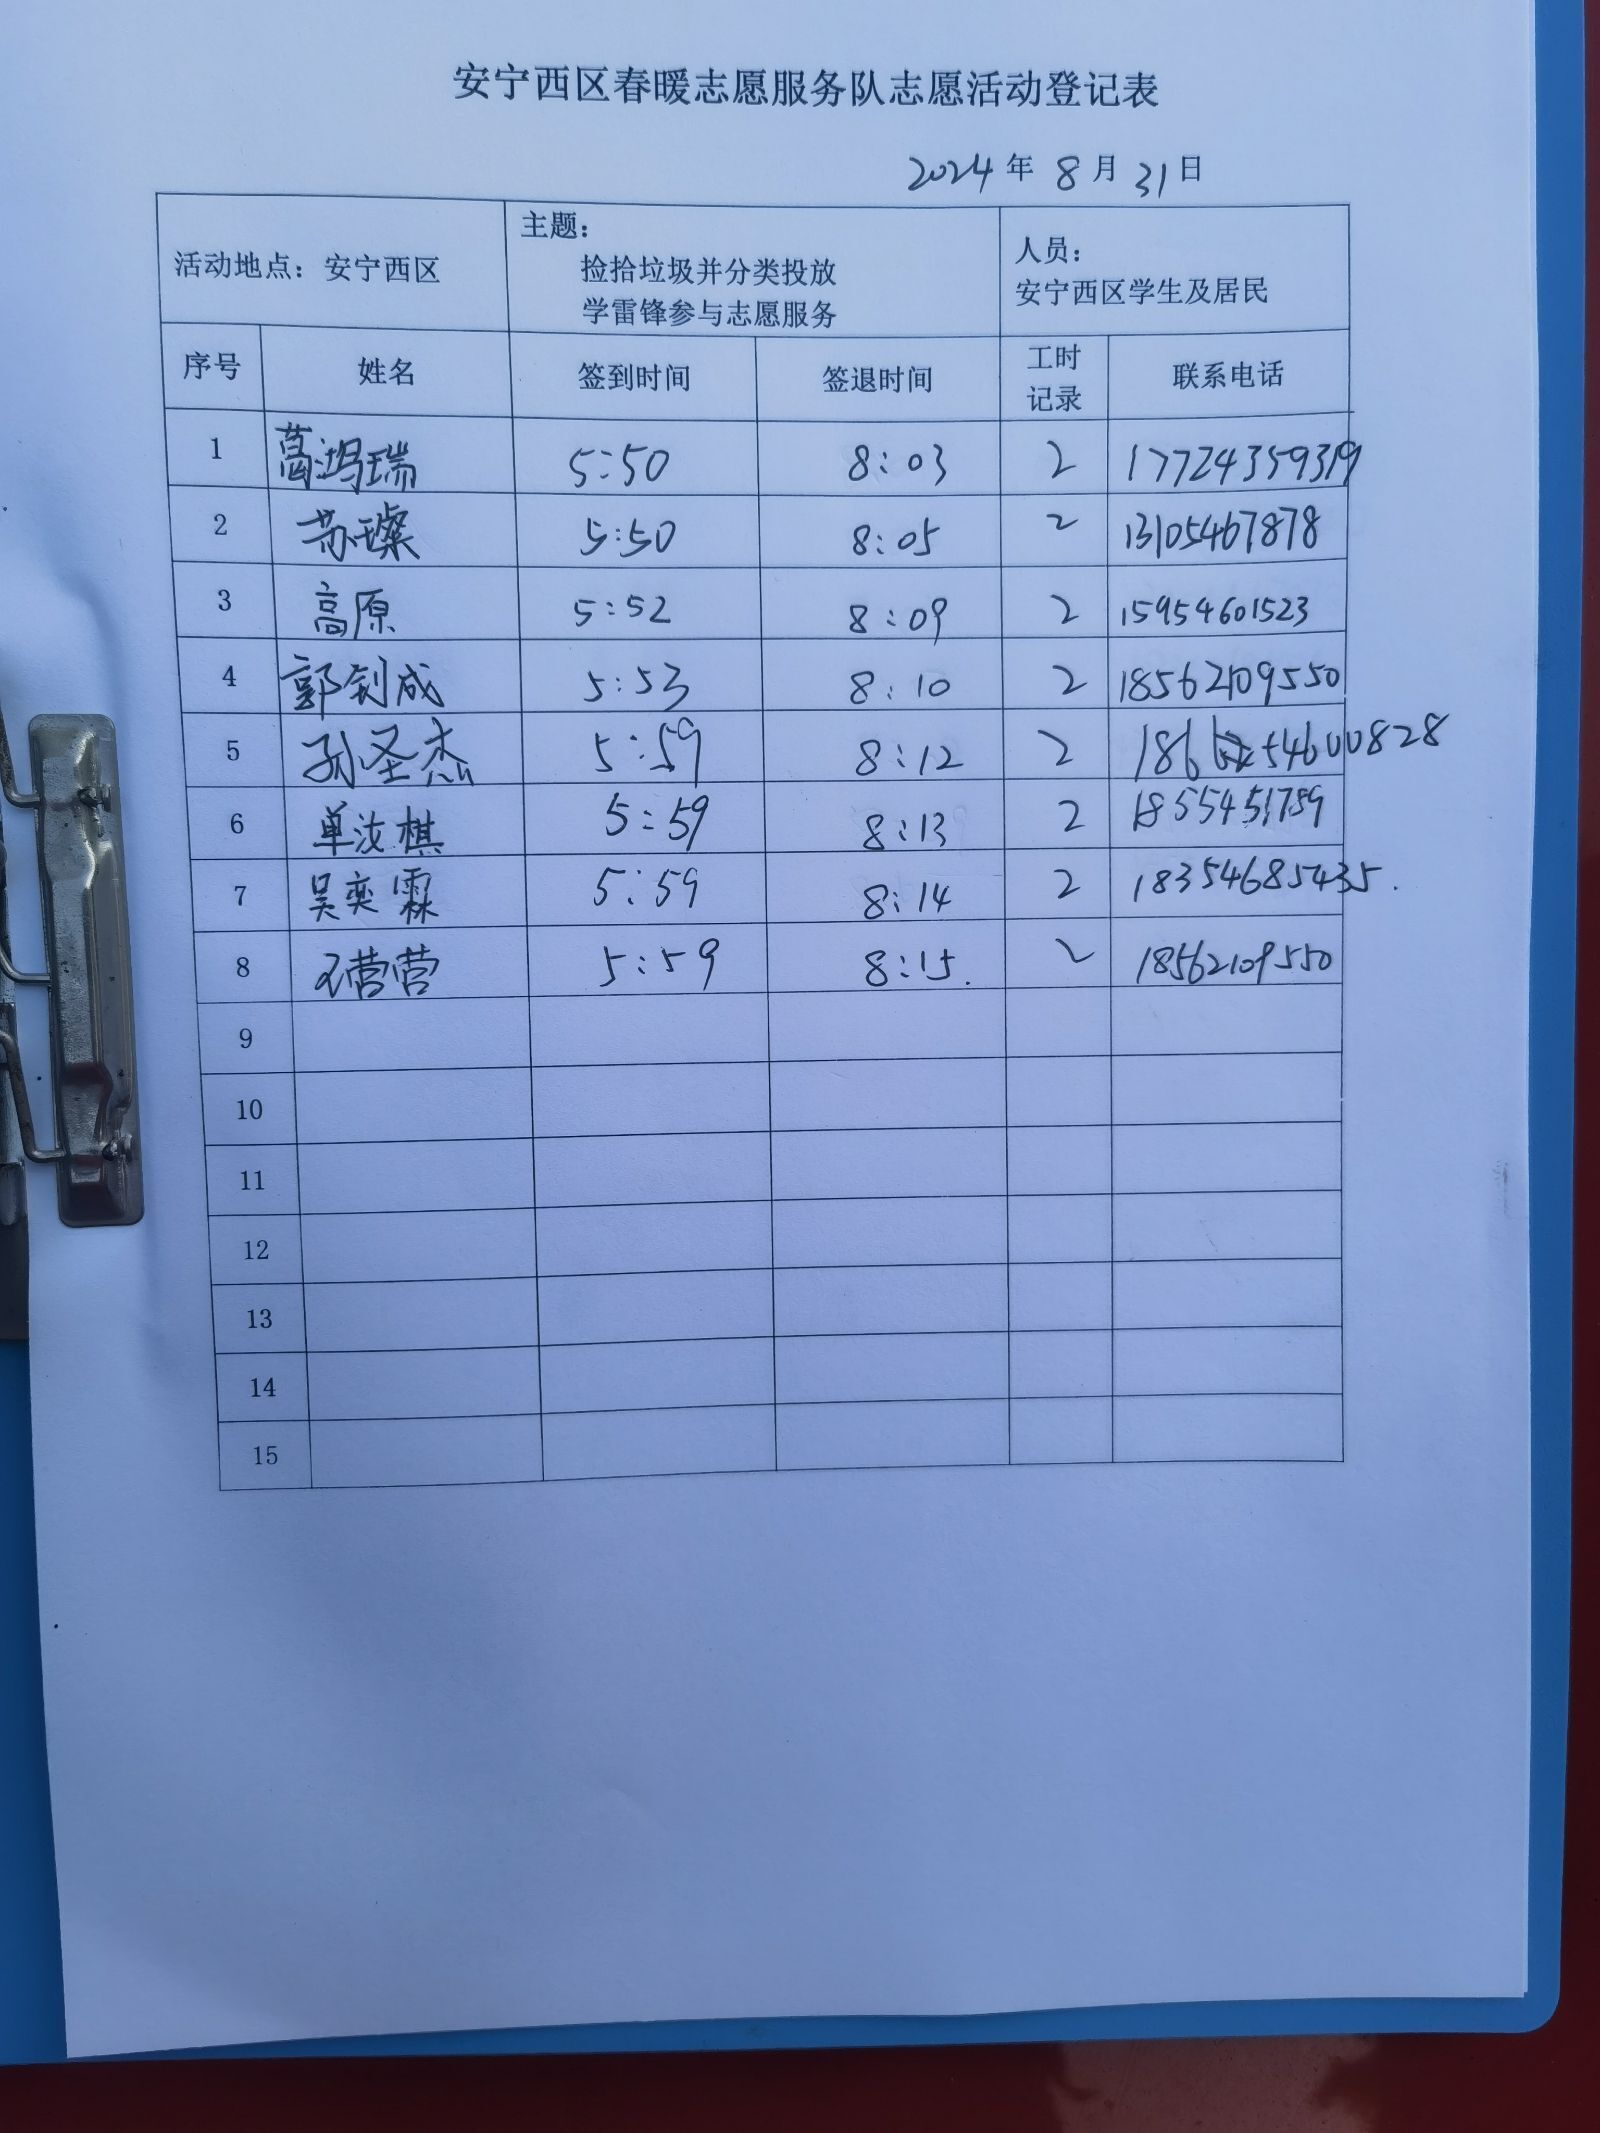 安宁西区春暖志愿服务队志愿活动登记表
2024年 8月 31日
活动地点：安宁西区
主题：
捡拾垃圾并分类投放
学雷锋参与志愿服务
人员：
安宁西区学生及居民
序号 姓名 签到时间 签退时间 工时记录 联系电话
1 葛鸿瑞 5:50 8:03 2 17724359319
2 苏璨 5:50 8:05 2 13105467878
3 高原 5:52 8:09 2 15954601523
4 郭钊成 5:53 8:10 2 18562109550
5 孙圣杰 5:59 8:12 2
6 单汝棋 5:59 8:13 2
7 吴奕霖 5:59 8:14 2 18354685435.
8 营营 5:59 8:15. 2 18562109550
9
10
11
12
13
14
15